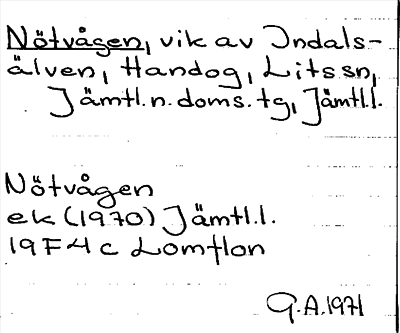 Nötvågen, vik av Indals-
älven, Handog, Lits sn,
Jämtl.n.doms.tg, Jämtl.l.
Nötvågen
ek (1970) Jämtl.l.
19F4c Lomflon
G.A.1971